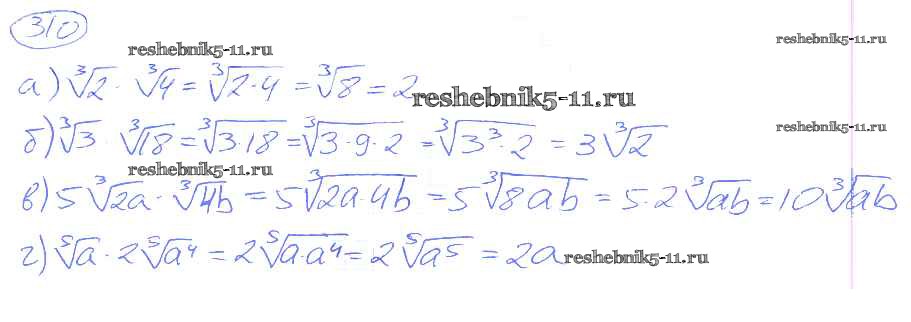 310
reshebnik5-11.ru
reshebnik5-11.ru
а) ∛2 · ∛4 = ∛(2·4) = ∛8 = 2
reshebnik5-11.ru
б) ∛3 · ∛18 = ∛(3·18) = ∛(3·9·2) = ∛(3³·2) = 3∛2
reshebnik5-11.ru
reshebnik5-11.ru
в) 5∛2a · ∛4b = 5∛(2a·4b) = 5∛(8ab) = 5·2∛ab = 10∛ab
г) ⁵√a · 2⁵√a⁴ = 2⁵√(a·a⁴) = 2⁵√a⁵ = 2a
reshebnik5-11.ru